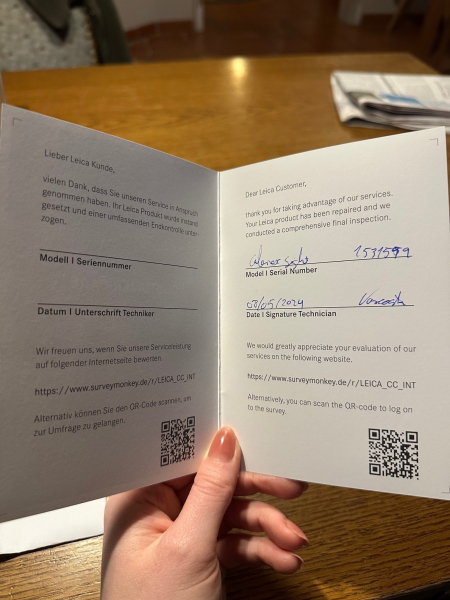 Lieber Leica Kunde,
vielen Dank, dass Sie unseren Service in Anspruch
genommen haben. Ihr Leica Produkt wurde instand
gesetzt und einer umfassenden Endkontrolle unter-
zogen.
Modell I Seriennummer
Datum I Unterschrift Techniker
Wir freuen uns, wenn Sie unsere Serviceleistung
auf folgender Internetseite bewerten.
https://www.surveymonkey.de/r/LEICA_CC_INT
Alternativ können Sie den QR-Code scannen, um
zur Umfrage zu gelangen.
Dear Leica Customer,
thank you for taking advantage of our services.
Your Leica product has been repaired and we
conducted a comprehensive final inspection.
Model I Serial Number
Date I Signature Technician
We would greatly appreciate your evaluation of our
services on the following website.
https://www.surveymonkey.de/r/LEICA_CC_INT
Alternatively, you can scan the QR-code to log on
to the survey.